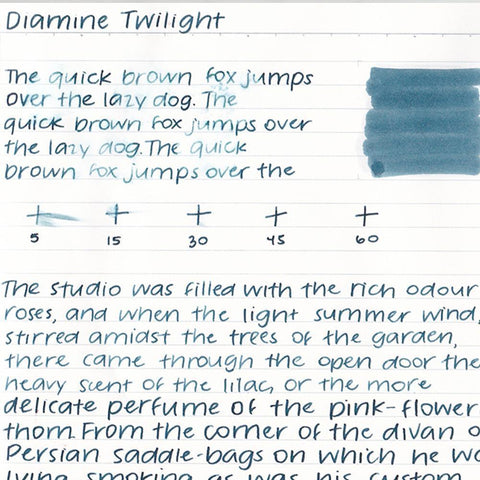 Diamine Twilight
The quick brown fox jumps
over the lazy dog. The
quick brown fox jumps over
the lazy dog. The quick
brown fox jumps over the
5 15 30 45 60
The studio was filled with the rich odour
roses, and when the light summer wind,
stirred amidst the trees of the garden,
there came through the open door the
heavy scent of the lilac, or the more
delicate perfume of the pink-flower
thorn. From the corner of the divan o
Persian saddle-bags on which he wa
lying smoking as was his custom